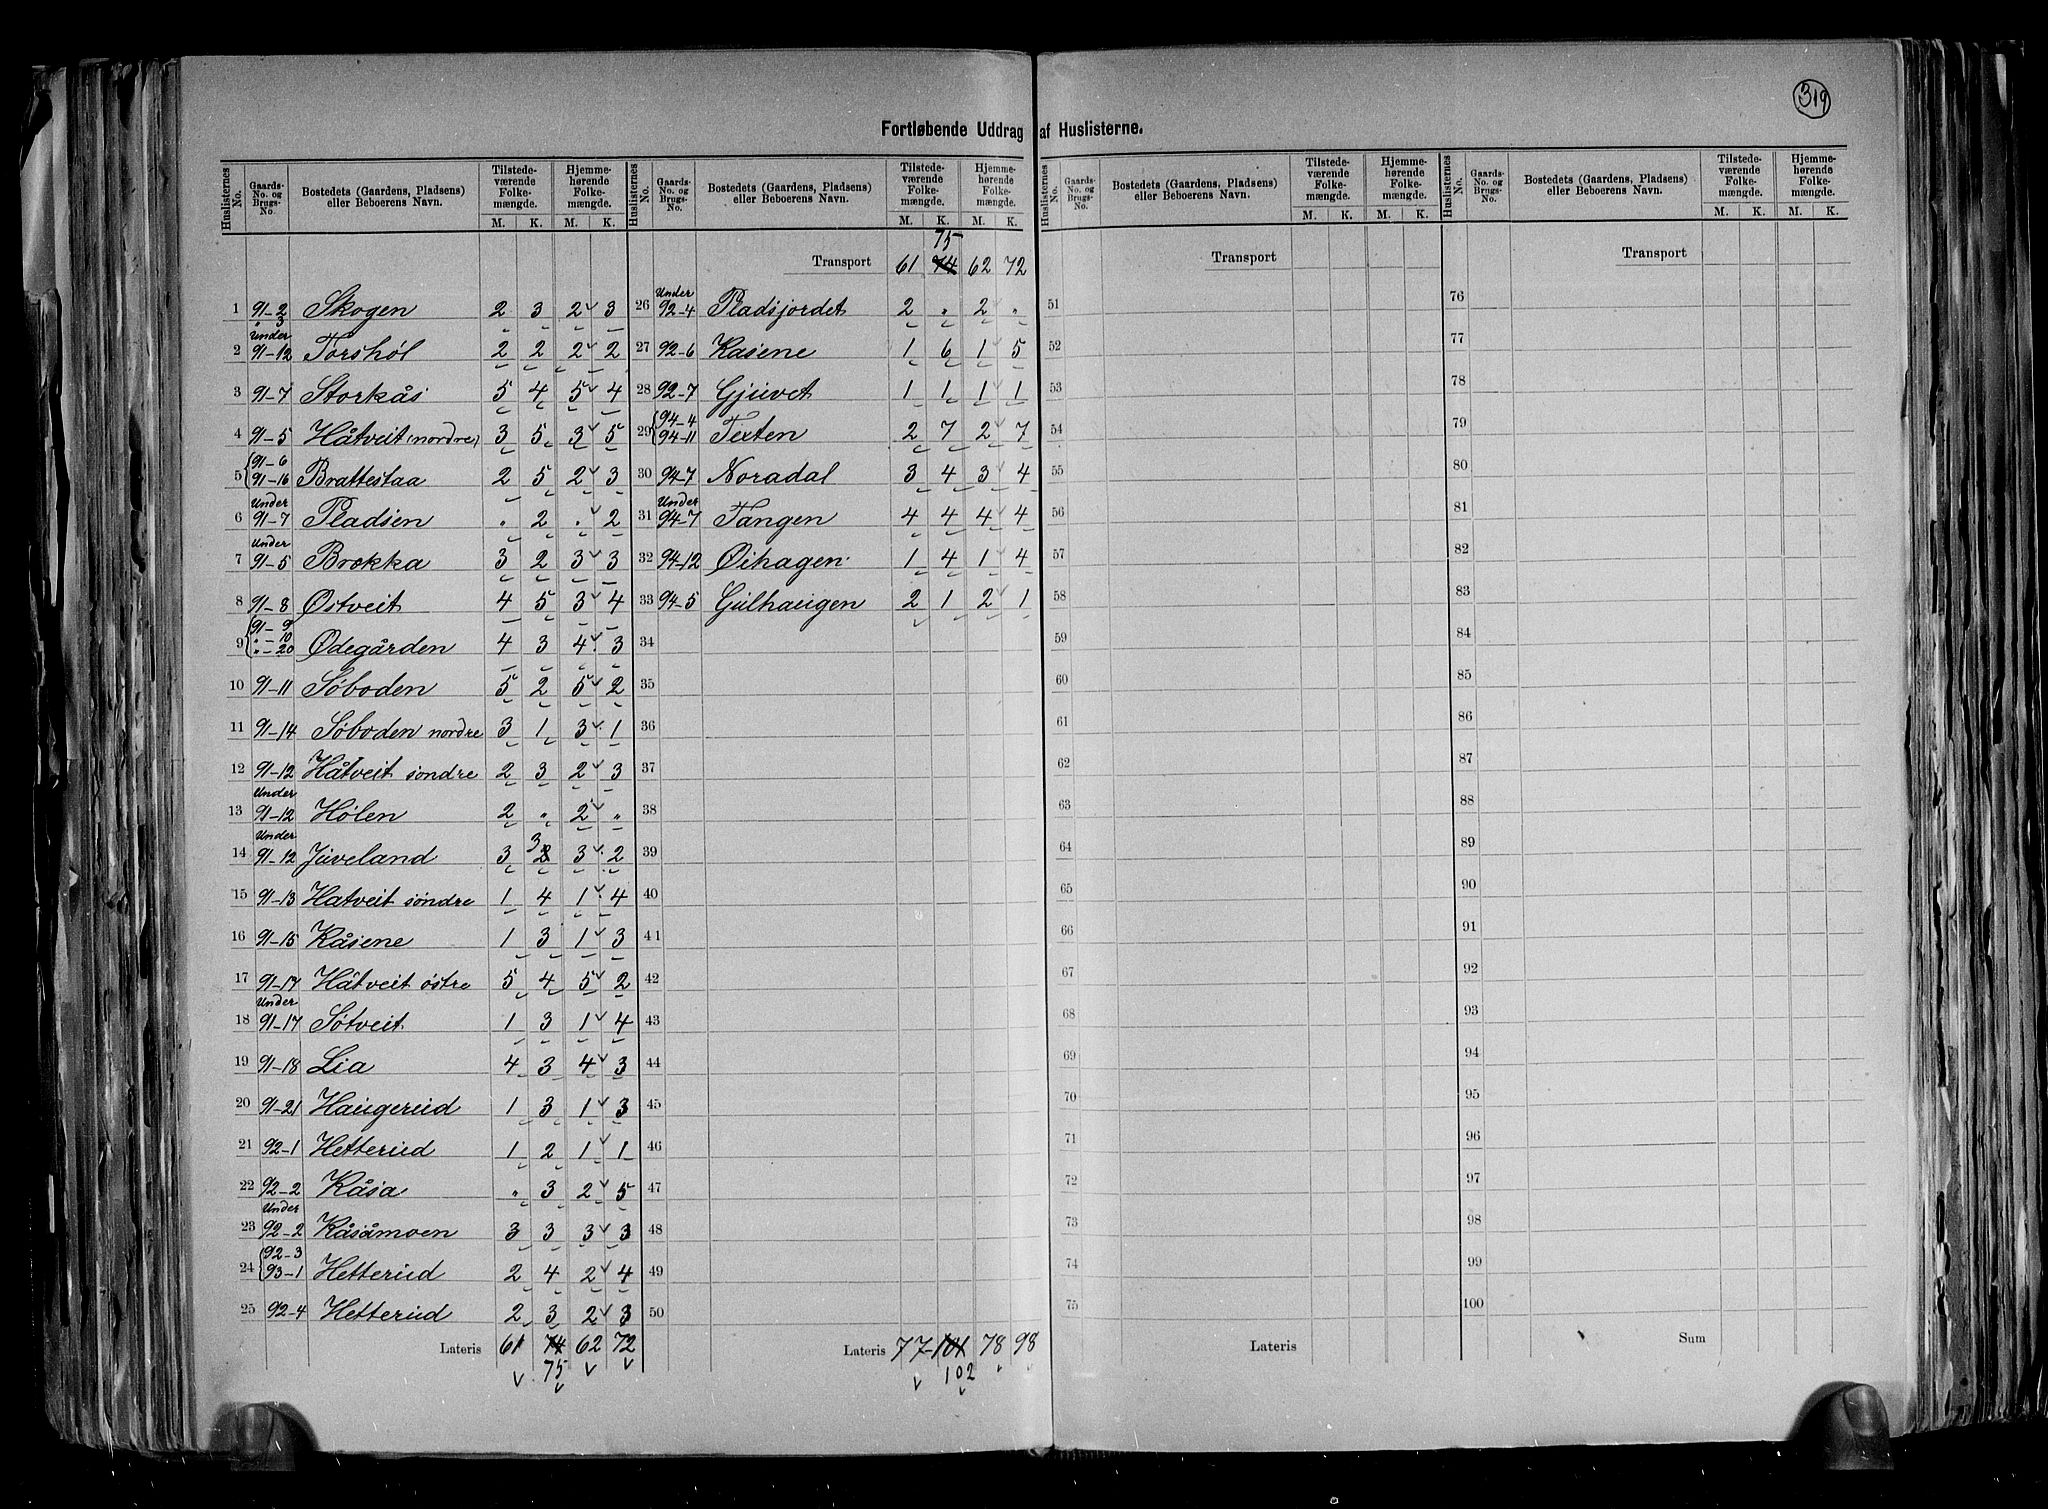 319
Fortløbende Uddrag af Huslisterne.
Huslisternes No. | Gaards-No. og Brugs-No. | Bostedets (Gaardens, Pladsens) eller Beboerens Navn. | Tilstedeværende Folkemængde. M. K. | Hjemmehørende Folkemængde. M. K.
1 91-2 " 3 Skogen 2 3 2 3
2 Under 91-12 Torshøl 2 2 2 2
3 91-7 Storkås 5 4 5 4
4 91-5 Håtveit (nordre) 3 5 3 5
5 91-6 91-16 Brattestaa 2 5 2 3
6 Under 91-7 Pladsen " 2 " 2
7 Under 91-5 Brokka 3 2 3 3
8 91-8 Østveit 4 5 3 4
9 91-9 "-10 "-20 Ødegården 4 3 4 3
10 91-11 Søboden 5 2 5 2
11 91-14 Søboden nordre 3 1 3 1
12 91-12 Håtveit søndre 2 3 2 3
13 Under 91-12 Hølen 2 " 2 "
14 Under 91-12 Juveland 3 2 3 3 2
15 91-13 Hatveit søndre 1 4 1 4
16 91-15 Kåsene 1 3 1 3
17 91-17 Håtveit østre 5 4 5 2
18 Under 91-17 Søtveit 1 3 1 4
19 91-18 Lia 4 3 4 3
20 91-21 Haugerud 1 3 1 3
21 92-1 Hetterud 1 2 1 1
22 92-2 Kåsa " 3 2 5
23 Under 92-2 Kåsåmoen 3 3 3 3
24 92-3 93-1 Hetterud 2 4 2 4
25 92-4 Hetterud 2 3 2 3
Lateris 61 74 62 72
75
Huslisternes No. | Gaards-No. og Brugs-No. | Bostedets (Gaardens, Pladsens) eller Beboerens Navn. | Tilstedeværende Folkemængde. M. K. | Hjemmehørende Folkemængde. M. K.
75
Transport 61 74 62 72
26 Under 92-4 Pladsjordet 2 " 2 "
27 92-6 Kasene 1 6 1 5
28 92-7 Gjuvet 1 1 1 1
29 94-4 94-11 Texten 2 7 2 7
30 94-7 Noradal 3 4 3 4
31 Under 94-7 Tangen 4 4 4 4
32 94-12 Øihagen 1 4 1 4
33 94-5 Gulhaugen 2 1 2 1
34
35
36
37
38
39
40
41
42
43
44
45
46
47
48
49
50
Lateris 77 101 78 98
102
Huslisternes No. | Gaards-No. og Brugs-No. | Bostedets (Gaardens, Pladsens) eller Beboerens Navn. | Tilstedeværende Folkemængde. M. K. | Hjemmehørende Folkemængde. M. K.
Transport
51
52
53
54
55
56
57
58
59
60
61
62
63
64
65
66
67
68
69
70
71
72
73
74
75
Lateris
Huslisternes No. | Gaards-No. og Brugs-No. | Bostedets (Gaardens, Pladsens) eller Beboerens Navn. | Tilstedeværende Folkemængde. M. K. | Hjemmehørende Folkemængde. M. K.
Transport
76
77
78
79
80
81
82
83
84
85
86
87
88
89
90
91
92
93
94
95
96
97
98
99
100
Sum